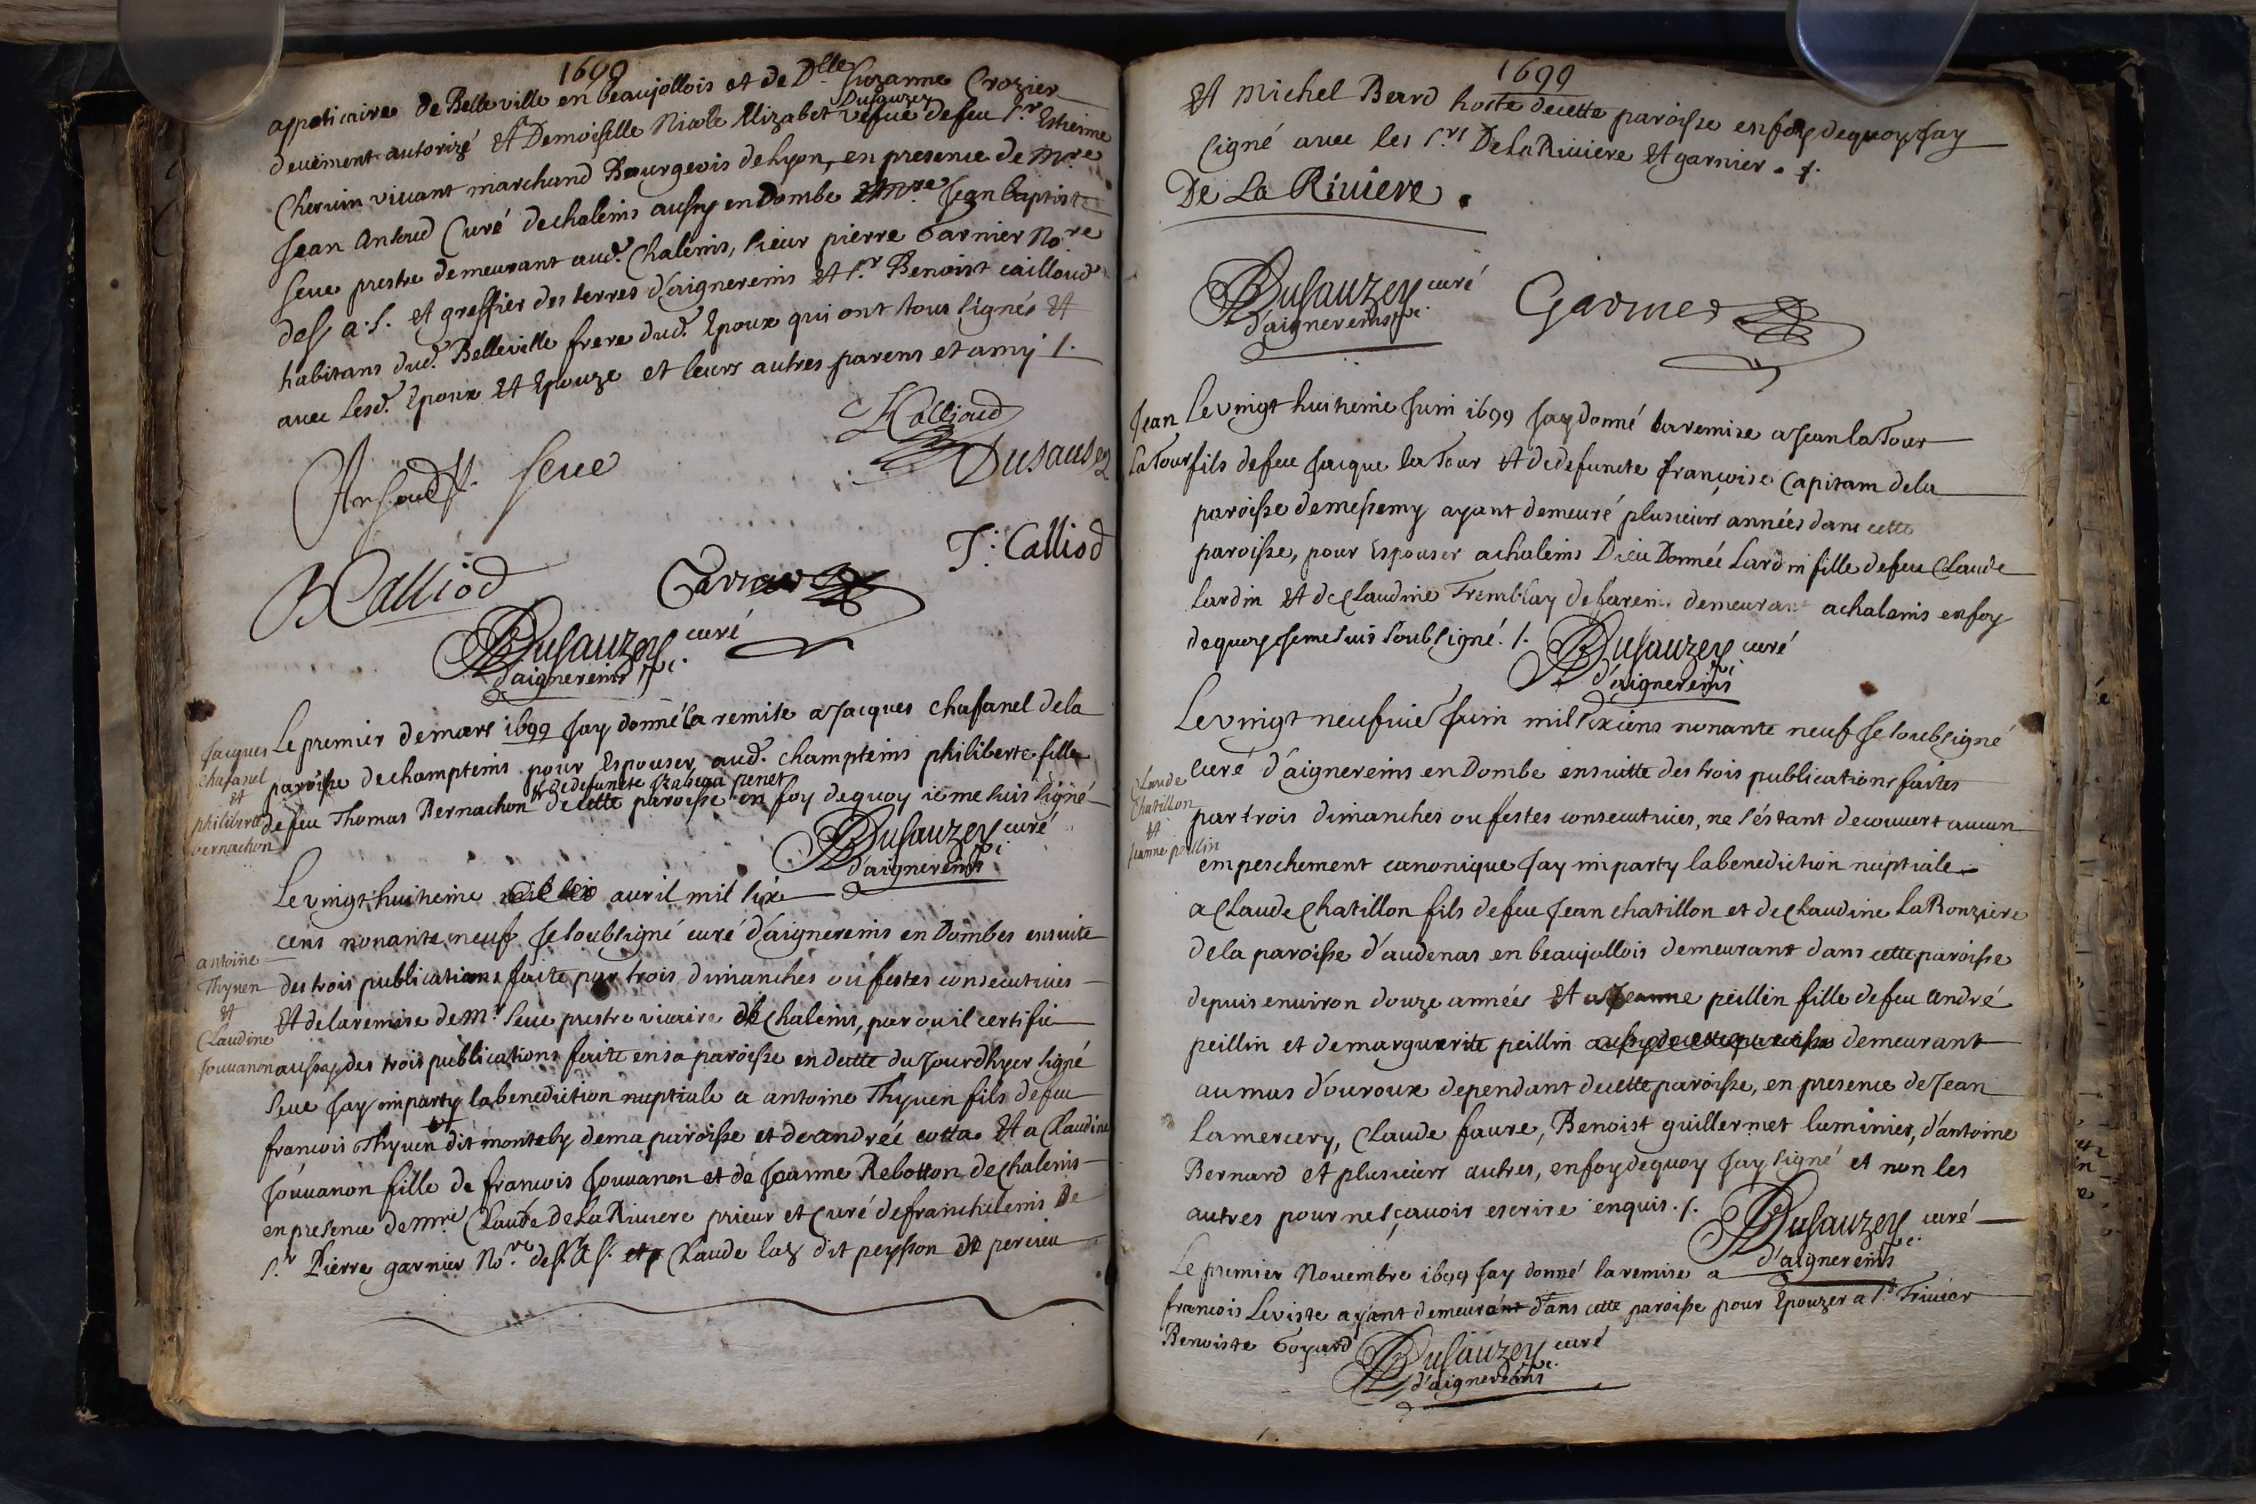 1699
appoticaire de Belleville en beaujollois et de Dlle Suzanne Crozier
Dusauzey
deuement autorizé et Demoiselle Nicole Elizabet vefue de feu Sr Estienne
Cheruin viuant marchand Bourgeois de Lyon, en presence de Mre
Jean Antoud Curé de chaleins aussy en Dombe et Mre Jean baptiste
Seue prestre demeurant aud. Chaleins, sieur pierre Garnier Nore
de S. A. S. et greffier des terres d'aignereins et Sr Benoist cailloud
habitans dud. Belleville frere dud. Epoux qui ont tous signés et
auec lesd. Epoux et Epouze et leurs autres parens et amy /.
Calliod
Seue
Dusausey
J. Calliod
B Calliod
Garnier
Dusauzey curé
d'aignereins
Jacques
chafanel
et
philiberte
bernachon
Le premier de mars 1699 Jay donné la remise a Jacques chafanel de la
paroisse de champteins pour Espouser aud. champteins philiberte fille
et de defuncte
de feu Thomas Bernachon de cette paroisse en foy dequoy ie me suis signé
Dusauzey curé
d'aignereins
Le vingt huitieme auril mil six
cens nonante neuf Je soubsigné curé d'aignereins en Dombes ensuite
antoine
Thyuen
et
Claudine
Jouuanon
des trois publications faite par trois dimanches ou festes consecutiues
et de la remise de Mr Seue prestre vicaire de Chaleins, par ou il certifie
aussy des trois publications faite en sa paroisse en datte du Jourdhyer signé
Seue Jay imparty la benediction nuptiale a antoine Thyuen fils de feu
francois Thyuen dit monteby de ma paroisse et de andréé cotta et a Claudine
Jouuanon fille de francois Jouuanon et de Jeanne Rebotton de Chaleins
en presence de Mre Claude De La Riuiere prieur et Curé de francheleins De
Sr Pierre garnier Nore de S. A. S. Claude dit peysson de percieu
1699
et Michel Berd hoste de cette paroisse en foy dequoy Jay
signé auec les Srs De la Riuiere et garnier . /.
De La Riuiere .
Dusauzey curé
d'aignereins
Garnier
Jean
la Tour
Le vingt huitieme Juin 1699 Jay donné la remise a Jean la Tour
fils de feu Jacque la Tour et de defuncte françoise Capitam de la
paroisse de messemy ayant demeuré plusieurs années dans cette
paroisse, pour Espouser a chaleins Dieu Donnéé Lardin fille de feu Claude
Lardin et de Claudine Tremblay de fareins demeurant a chaleins en foy
dequoy Je me suis soubsigné. /.
Dusauzey curé
d'aignereins
Claude
Chatillon
et
Jeanne peillin
Le vingt neufuie Juin mil six cens nonante neuf Je soubsigné
curé d'aignereins en Dombe ensuitte des trois publications faites
par trois dimanches ou festes consecutiues, ne s'éstant decouuert aucun
empeschement canonique Jay imparty la benediction nuptiale
a Claude Chatillon fils de feu Jean chatillon et de Claudine La Ronziere
de la paroisse d'audenas en beaujollois demeurant dans cette paroisse
depuis enuiron douze années et a Jeanne peillin fille de feu andré
peillin et de marguerite peillin aussy de cette paroisse demeurant
au mas d'ouroux dependant de cette paroisse, en presence de Jean
Lamercery, Claude faure, Benoist guillermet luminier, d'antoine
Bernard et plusieurs autres, en foy dequoy Jay signé et non les
autres pour ne sçauoir escrire enquis. /.
Dusauzey curé
d'aignereins
Le premier Nouembre 1699 Jay donné la remise a
francois Leviste ayant demeurant dans cette paroisse pour Epouzer a St Triuier
Benoiste Goyard
Dusauzey curé
d'aignereins